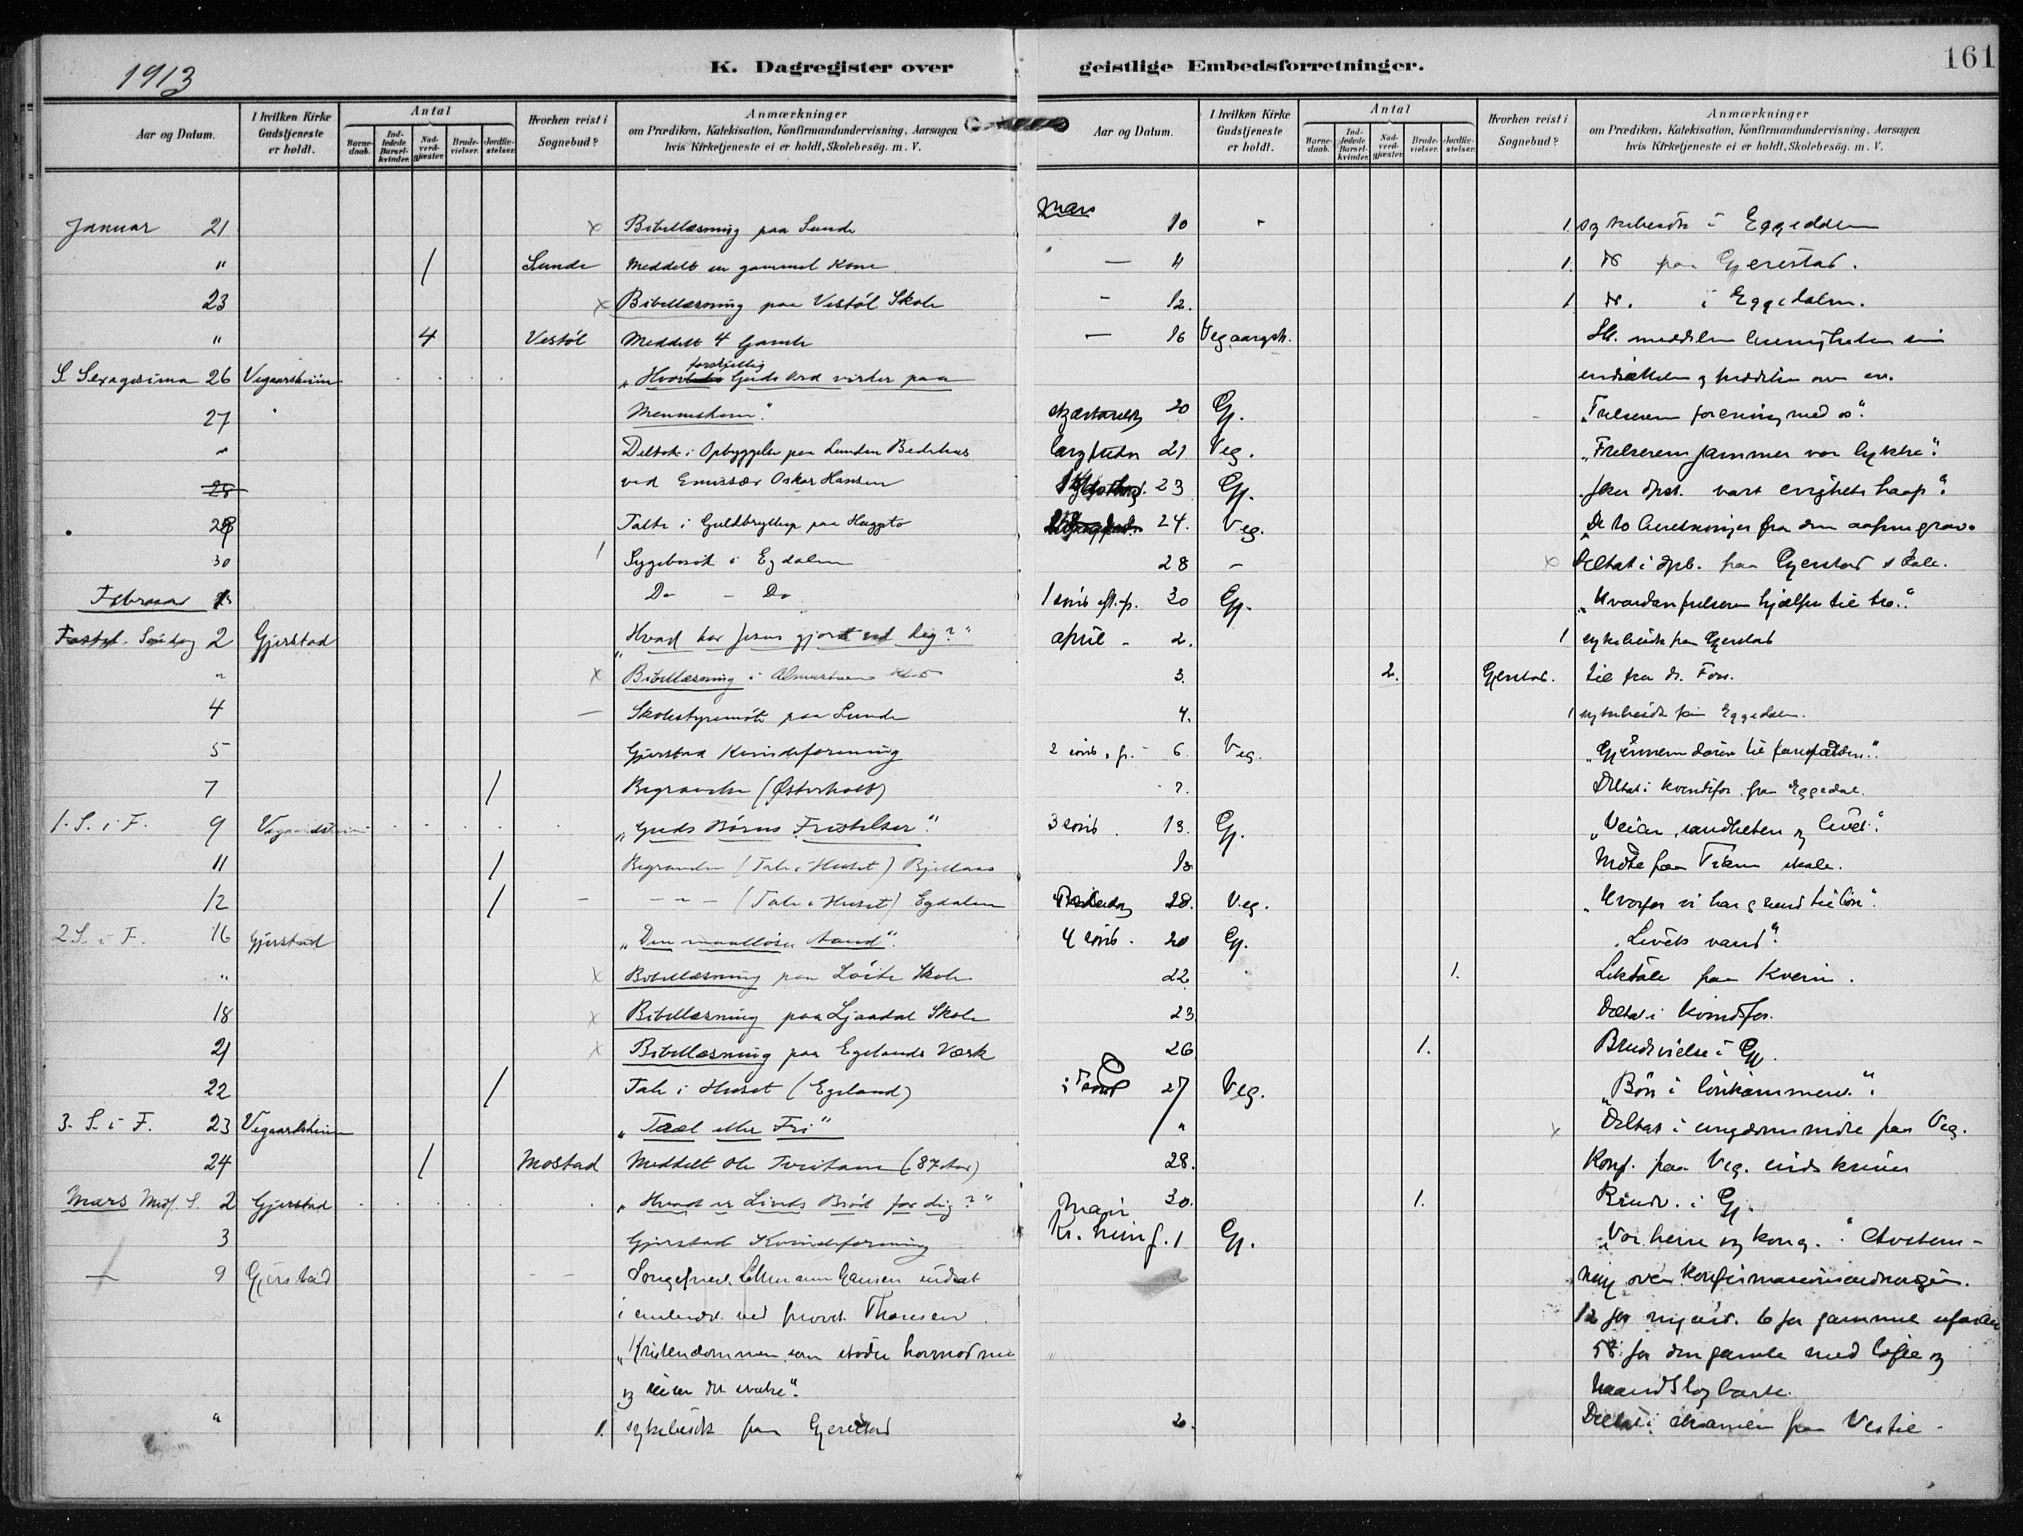 1913
K. Dagregister over
geistlige Embedsforretninger.
161
Aar og Datum.
I hvilken Kirke Gudstjeneste er holdt.
Antal
Barne-daab.
Ind-ledede Barsel-kvinder.
Nad-verd-gjæster.
Brude-vielser.
Jordfæ-stelser.
Hvorhen reist i Sognebud?
Anmærkninger
om Prædiken, Katekisation, Konfirmandundervisning, Aarsagen
hvis Kirketjeneste ei er holdt, Skolebesög. m. V.
Januar 21 x Bibellæsning paa Sunde
" / Sunde Meddelt en gammel Kone
23 x Bibellæsning paa Vestøl Skole
" 4 Vestøl Meddelt 4 Gamle
S. Sexagesima 26 Vegaarsheim „Hvor forskjellig Guds Ord virker paa
27 Menneskene."
" Deltok i Opbyggelse paa Lunden Bedehus
28 ved Emissær Oskar Hansen
28 Talte i Guldbryllup paa Haugsto
30 1 Sygebesøk i Egdalen
Februar 1 Do - Do
Fastel. Søndag 2 Gjerstad „Hvad har Jesus gjort ved dig?"
" x Bibellæsning i
4 — Skolestyremøte paa Sunde
5 Gjerstad Kvindeforening
7 / Begravelse (Østerholt)
1. S. i F. 9 Vegaardsheim „Guds Børns Fristelser."
11 / Begravelse (Tale i Huset)
12 / - - " - (Tale i Huset) Egdalen
2 S. i F. 16 Gjerstad „Den maalløse Aand".
" x Bibellæsning paa Løite Skole
18 x Bibellæsning paa Ljaadal Skole
21 x Bibellæsning paa Egelands Værk
22 / Tale i Huset (Egeland)
3. S. i F. 23 Vegaardsheim „Træl eller Fri"
24 / Mostad Meddelt Ole (87 Aar)
Mars Midf. S. 2 Gjerstad „Hvad er Livets Brød for dig?"
3 Gjerstad Kvindeforening
9 Gjerstad Sognepræst indsat
i embedet ved provst
„Kristendommen som støder hovmodne
og reiser de svake".
" 1. sykebesøk paa Gjerstad
Aar og Datum.
I hvilken Kirke Gudstjeneste er holdt.
Antal
Barne-daab.
Ind-ledede Barsel-kvinder.
Nad-verd-gjæster.
Brude-vielser.
Jordfæ-stelser.
Hvorhen reist i Sognebud?
Anmærkninger
om Prædiken, Katekisation, Konfirmandundervisning, Aarsagen
hvis Kirketjeneste ei er holdt, Skolebesög. m. V.
Mars 10 1. sykebesøk i Eggedalen
— 11 1. do paa Gjerestad.
- 12. 1 do. i Eggedalen.
— 16 Vegaarsh. meddelte menigheden sin
indsættelse og prædiken over ev.
skjærtorsdag 20 Gj. „Frelserens forening med os".
langfredag 21 Veg. „Frelserens jammer vor lykke".
23 Gj. vort evighets haap".
24. Veg. De to beretninger fra den aapne grav.
28 — x Deltat i opb. paa Gjerstad skole.
1 sønd. eft. p. 30 Gj. „Hvordan frelseren hjælper til tro."
april - 2. 1 sykebesøk paa Gjerstad
3. 2. Gjerstad. til fra dr. Foss.
4. 1 sykebesøk paa Eggedalen.
2 sønd. e. p. - 6 Veg. „Gjennem døren til faarefolden".
7. Deltat i kvindefor. paa Eggedal.
3 sønd. 13. Gj. „Veien, sandheten og livet".
18. Møte paa skole.
Bededag 18. Veg. „Hvorfor vi har grund til bøn".
4 sønd. 20 Gj. „Livets vand".
22 1. Liktale paa Kveim.
23. Deltat i kvindefor.
26 1. Brudevielse i Gj.
27 Veg. „Bøn i lønkammeret".
" x Deltat i ungdomsmøte paa Veg.
28. Konf. paa Veg. indskriven
30. 1. Brudv. i Gj.
Mai
Kr. himf. 1 Gj. „Vor herre og konge." Avstem-
ning over konfirmationsordningen.
12 for ny ord. 6 for gammel uforan
58 for den gamle med løfte og
haandslag borte.
2. Deltat i eksamen paa Vestøl -